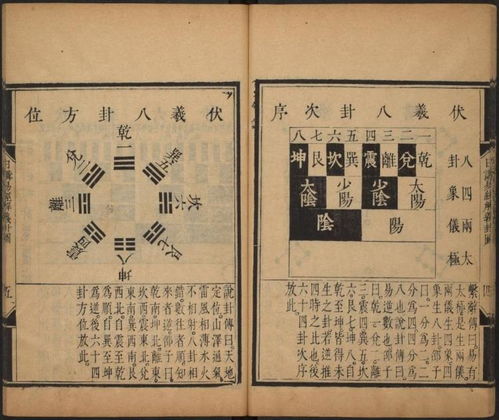 伏羲八卦次序
一二三四五六七八
乾兌離震巽坎艮坤
太陽 少陰 少陽 太陰
陽 陰
八卦
四象
兩儀
太極
繫辭傳曰易有
太極是生兩儀
兩儀生四象四
象生八卦邵子
曰一分為二二
分為四四分為
八也說卦傳曰
易逆數也邵子
曰乾一兌二離
三震四巽五坎
六艮七坤八自
乾至坤皆得未
生之卦若逆推
四時之比也後
六十四卦次序
放此
伏羲八卦方位
乾一
兌二
離三
震四
巽五
坎六
艮七
坤八
說卦傳曰天地
定位山澤通氣
雷風相薄水火
不相射八卦相
錯數往者順知
來者逆邵子曰
乾南坤北離東
坎西震東北兌
東南巽西南艮
西北自震至乾
為順自巽至坤
為逆後六十四
卦方位放此
日講易經解義卦圖
五